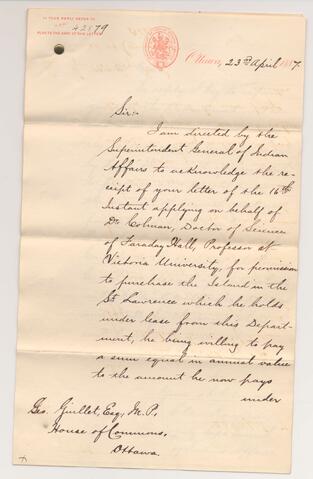 IN YOUR REPLY REFER TO
No. 42879
ALSO TO THE DATE OF THIS LETTER
Ottawa, 23rd April 1887.
Sir:-
I am directed by the
Superintendent General of Indian
Affairs to acknowledge the re-
ceipt of your letter of the 16th
Instant applying on behalf of
Dr. Colman, Doctor of Science
of Faraday Hall, Professor at
Victoria University, for permission
to purchase the Island in the
St. Lawrence which he holds
under lease from this Depart-
ment, he being willing to pay
a sum equal in annual value
to the amount he now pays
under
Geo. Guillet, Esq., M.P.
House of Commons,
Ottawa.